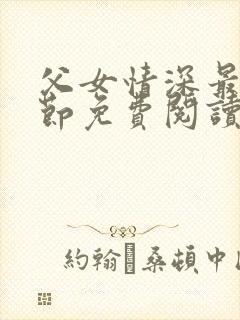 父女情深最
節免費閱讀
約翰·桑頓中